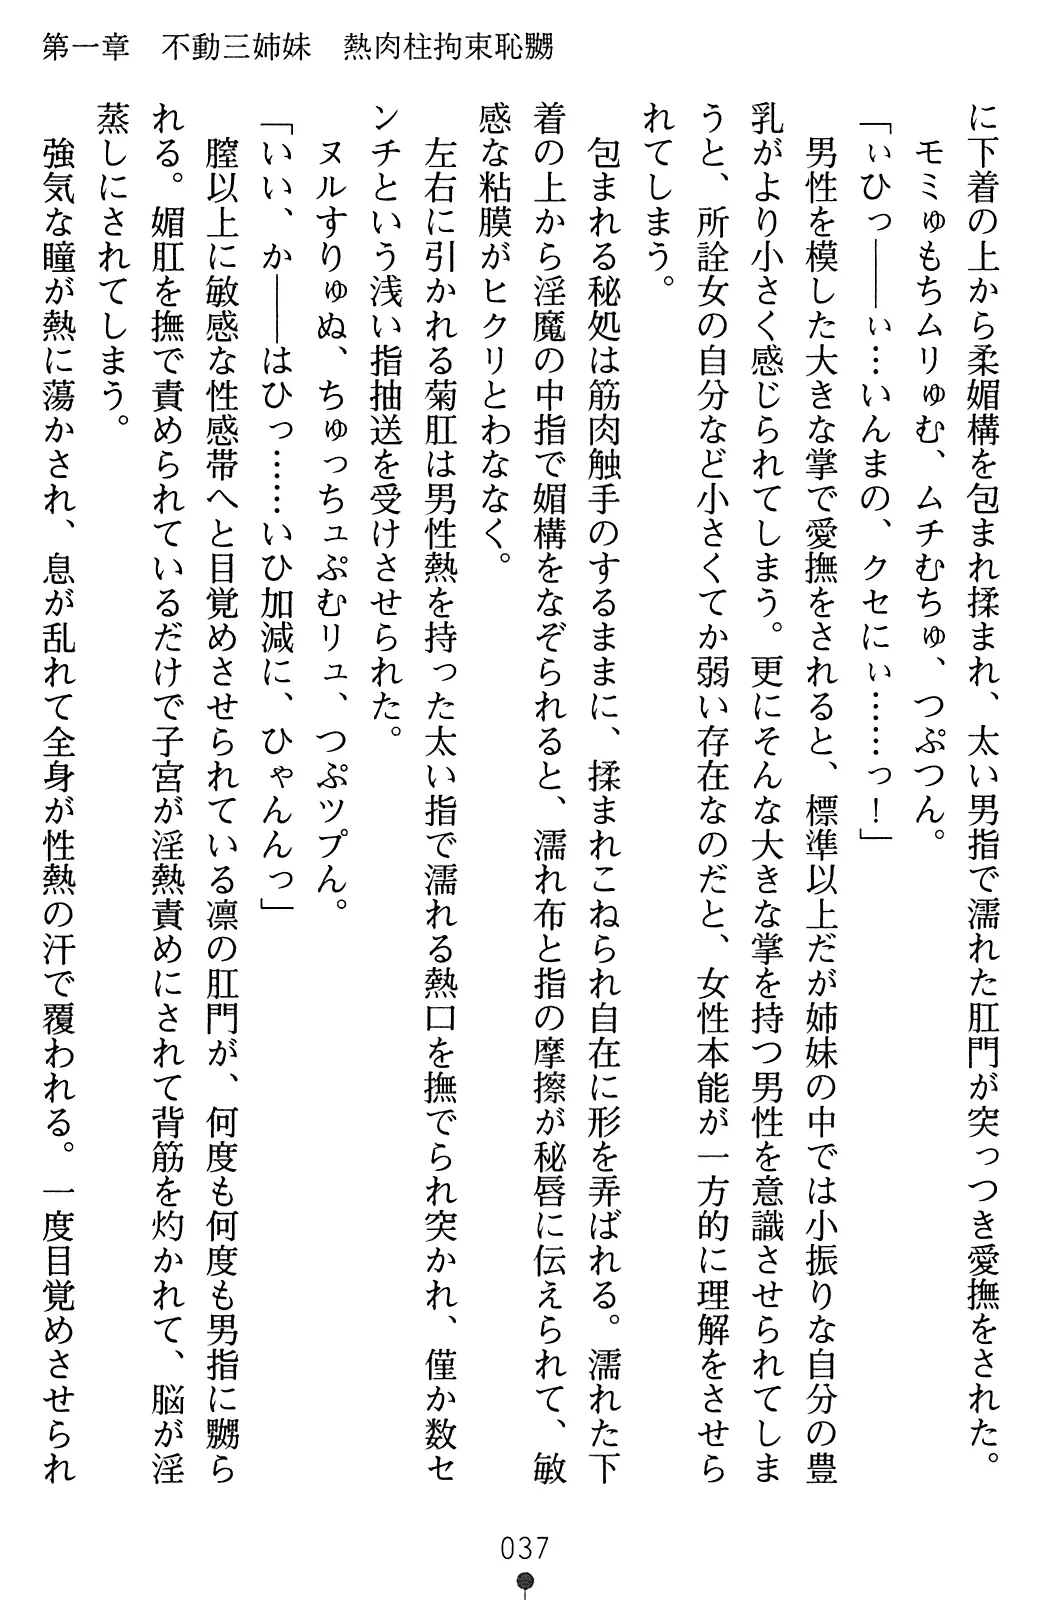 第一章　不動三姉妹　熱肉柱拘束恥嬲
に下着の上から柔媚構を包まれ揉まれ、太い男指で濡れた肛門が突っつき愛撫をされた。
モミゅもちムリゅむ、ムチむちゅ、つぷつん。
「ぃひっ――ぃ…いんまの、クセにぃ……っ！」
男性を模した大きな掌で愛撫をされると、標準以上だが姉妹の中では小振りな自分の豊
乳がより小さく感じられてしまう。更にそんな大きな掌を持つ男性を意識させられてしま
うと、所詮女の自分など小さくてか弱い存在なのだと、女性本能が一方的に理解をさせら
れてしまう。
包まれる秘処は筋肉触手のするままに、揉まれこねられ自在に形を弄ばれる。濡れた下
着の上から淫魔の中指で媚構をなぞられると、濡れ布と指の摩擦が秘唇に伝えられて、敏
感な粘膜がヒクリとわななく。
左右に引かれる菊肛は男性熱を持った太い指で濡れる熱口を撫でられ突かれ、僅か数セ
ンチという浅い指抽送を受けさせられた。
ヌルすりゅぬ、ちゅっちュぷむリュ、つぷツプん。
「いい、か――はひっ……いひ加減に、ひゃんんっ」
膣以上に敏感な性感帯へと目覚めさせられている凛の肛門が、何度も何度も男指に嬲ら
れる。媚肛を撫で責められているだけで子宮が淫熱責めにされて背筋を灼かれて、脳が淫
蒸しにされてしまう。
強気な瞳が熱に蕩かされ、息が乱れて全身が性熱の汗で覆われる。一度目覚めさせられ
037